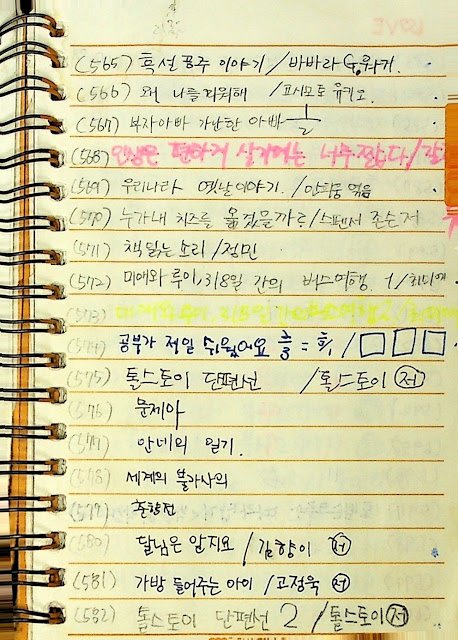 (565) 흑설공주 이야기 / 바바라 G. 워커.
(566) 왜 나를 미워해 / 요시모토 유키오
(567) 부자아빠 가난한 아빠 1/2
(568) 인생은 편하게 살기에는 너무 짧다 /
(569) 우리나라 옛날이야기. / 엮음
(570) 누가 내 치즈를 옮겼을까? / 스펜서 존슨 저
(571) 책 읽는 소리 / 정민
(572) 미애와 루이, 318일 간의 버스여행. 1 / 최미애
(573) 미애와 루이, 318일간의 버스여행 2 / 최미애
(574) 공부가 제일 쉬웠어요 / □□□
(575) 톨스토이 단편선 / 톨스토이 저
(576) 문제아
(577) 안네의 일기.
(578) 세계의 불가사의
(579) 춘향전
(580) 달님은 알지요 / 김향이 저
(581) 가방 들어주는 아이 / 고정욱 저
(582) 톨스토이 단편선 2 / 톨스토이 저